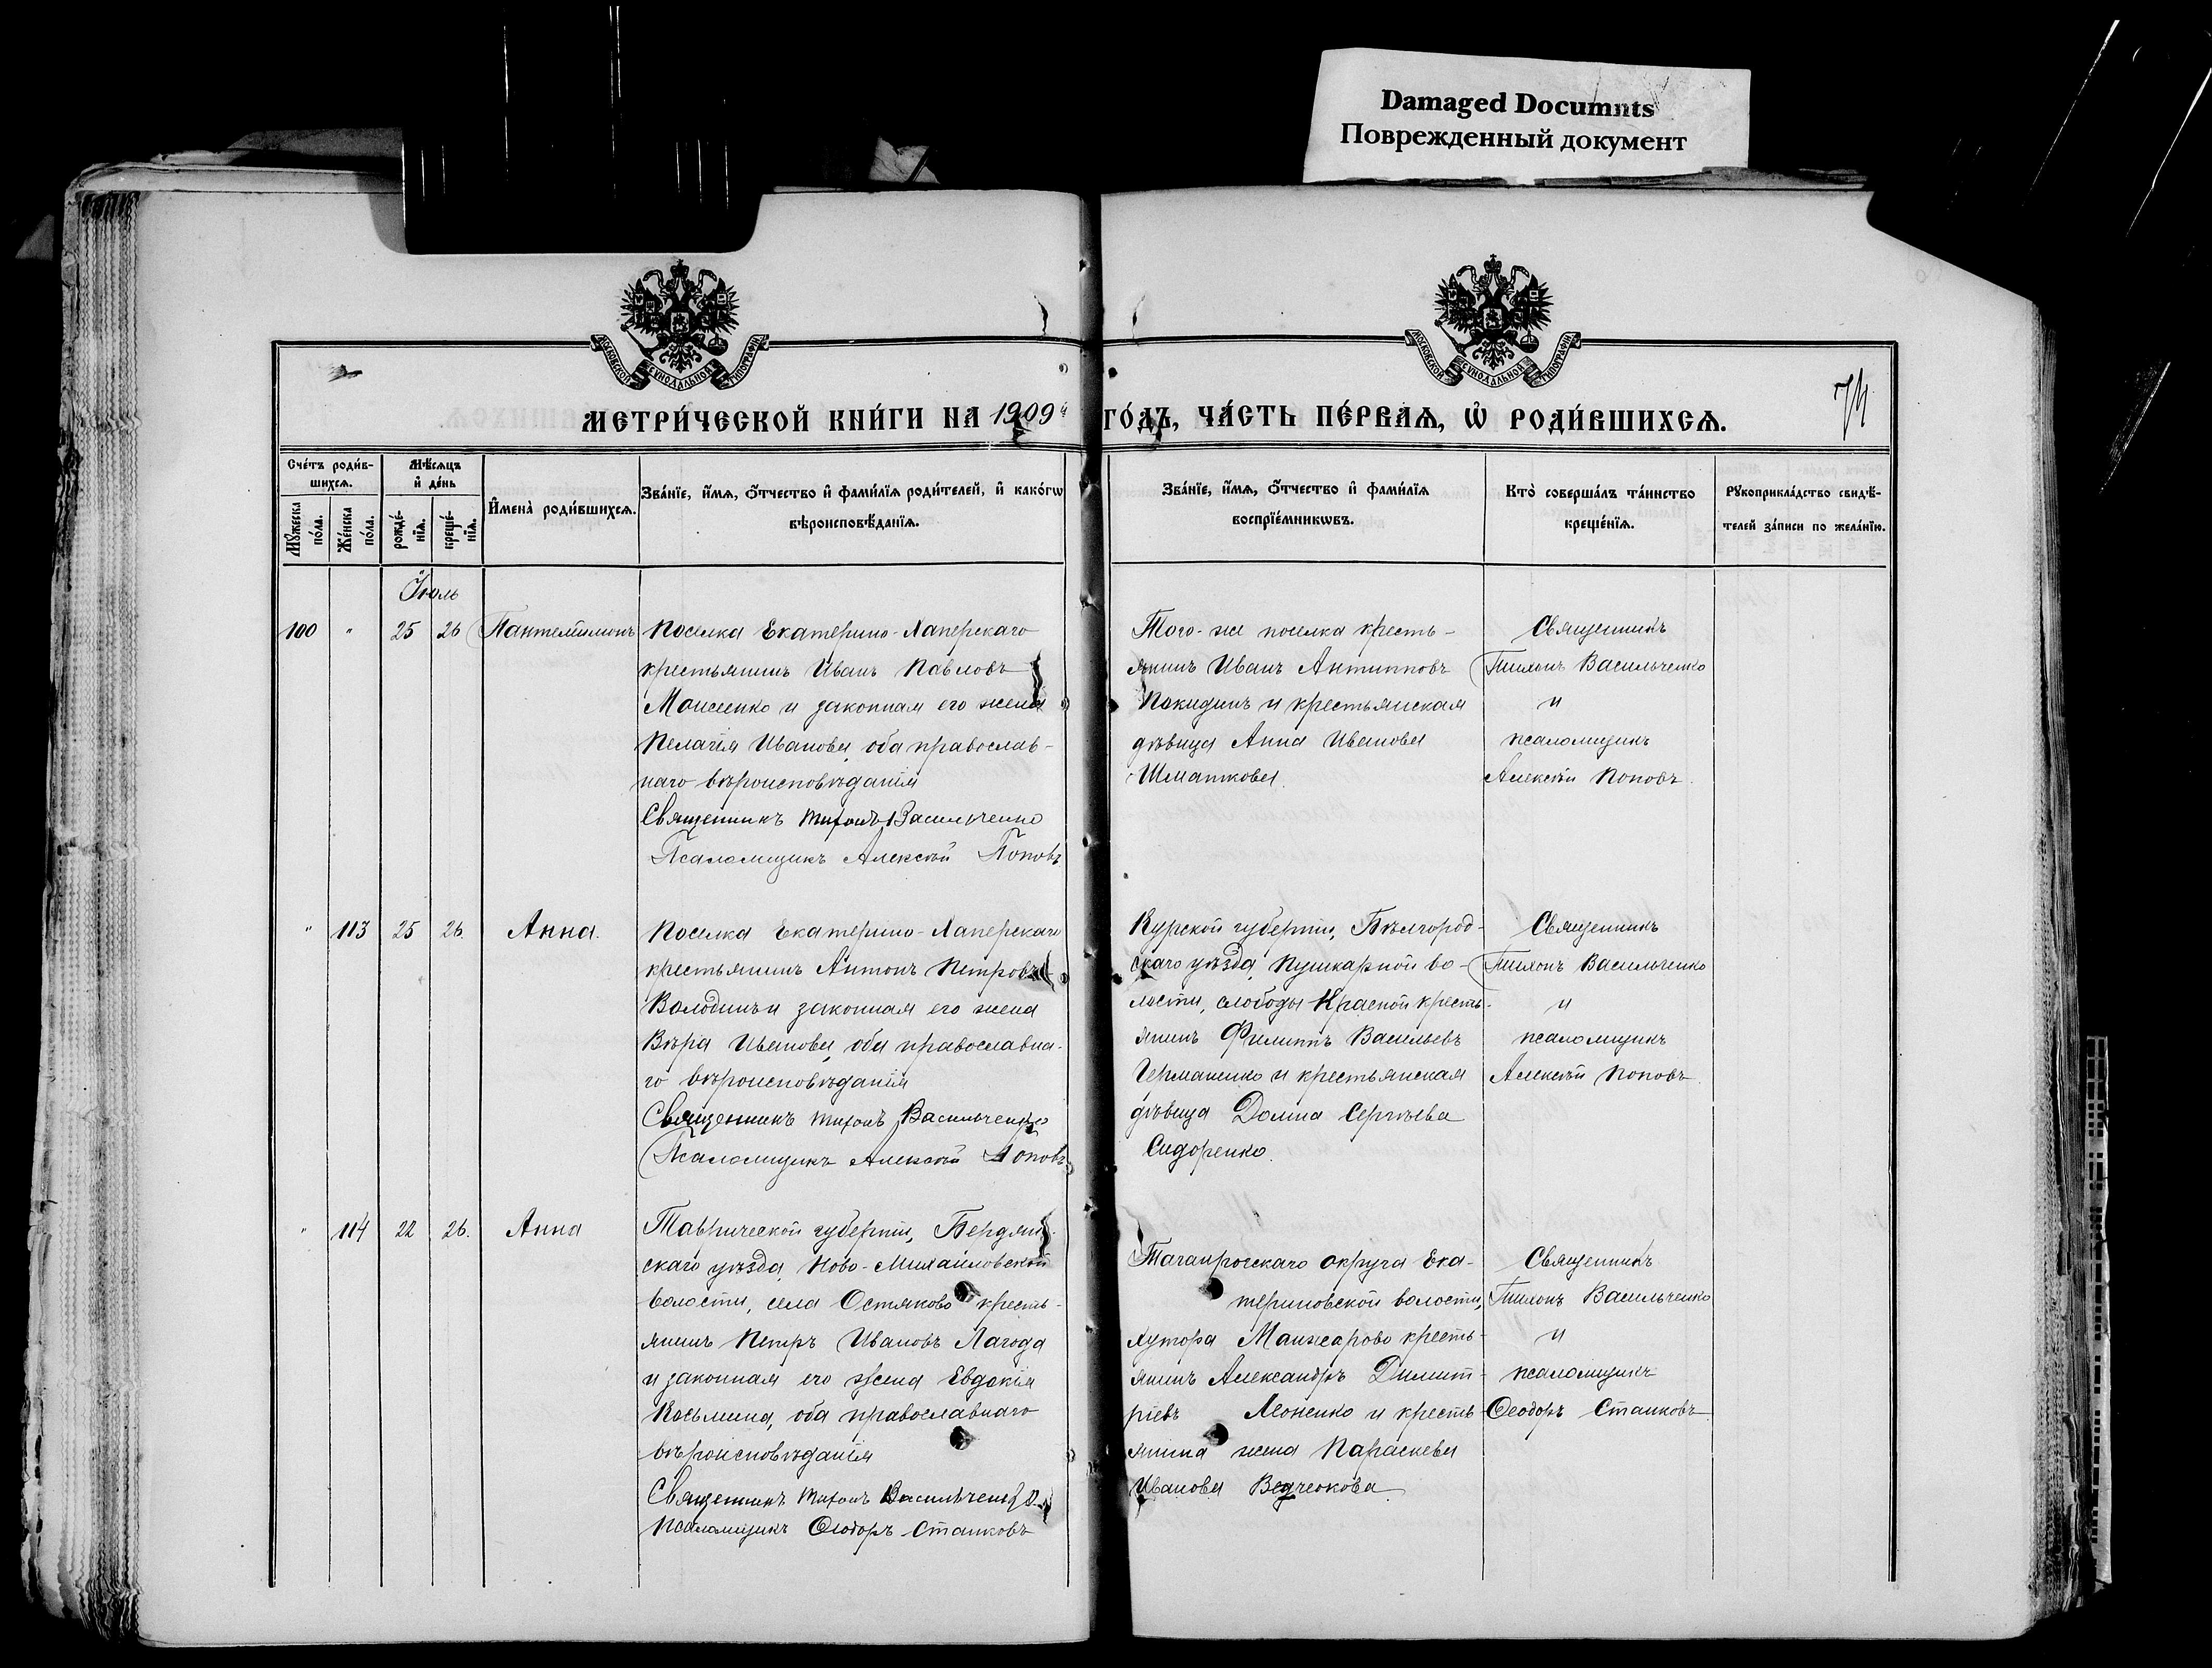 Damaged Documnts
Поврежденный документ
МОСКОВСКОЙ СѴНОДАЛЬНОЙ ТИПОГРАФІИ
МОСКОВСКОЙ СѴНОДАЛЬНОЙ ТИПОГРАФІИ
МЕТРИ́ЧЕСКОЙ КНИ́ГИ НА 1909й ГО́ДЪ, ЧА́СТЬ ПЕ́РВАѦ, Ѡ҆ РОДИ́ВШИХСѦ.
74
Сче́тъ роди́в-
шихсѧ.
Мꙋ́жеска по́ла.
Же́нска по́ла.
Мѣ́сѧцъ
и҆ де́нь
рожде́-
нїѧ.
креще́-
нїѧ.
И҆мена̀ роди́вшихсѧ.
Зва́нїе, и҆́мѧ, ѻ҆́тчество и҆ фами́лїѧ роди́телей, и҆ како́гѡ
вѣроисповѣ́данїѧ.
Зва́нїе, и҆́мѧ, ѻ҆́тчество и҆ фами́лїѧ
воспрїе́мникѡвъ.
Кто̀ соверша́лъ та́инство
креще́нїѧ.
Рꙋкоприкла́дство свидѣ́-
телей за́писи по жела́нїю.
Іюль
100 " 25 26 Пантелеимонъ
Поселка Екатерино-Хаперскаго
крестьянинъ Иванъ Павловъ
Моисеенко и законная его жена
Пелагія Иванова, оба православ-
наго вѣроисповѣданія
Священникъ Тихонъ Васильченко
Псаломщикъ Алексѣй Поповъ
Того-же поселка кресть-
янинъ Иванъ Антиповъ
Покидинъ и крестьянская
дѣвица Анна Иванова
Шматкова.
Священникъ
Тихонъ Васильченко
и
псаломщикъ
Алексѣй Поповъ.
" 113 25 26. Анна.
Поселка Екатерино-Хаперскаго
крестьянинъ Антонъ Петровъ
Володинъ и законная его жена
Вѣра Иванова, оба православна-
го вѣроисповѣданія
Священникъ Тихонъ Васильченко
Псаломщикъ Алексѣй Поповъ
Курской губерніи, Бѣлгород-
скаго уѣзда, Пушкарной во-
лости, слободы Красной кресть-
янинъ Филиппъ Васильевъ
Германенко и крестьянская
дѣвица Домна Сергѣева
Сидоренко.
Священникъ
Тихонъ Васильченко
и
псаломщикъ
Алексѣй Поповъ.
" 114 22 26. Анна
Таврической губерніи, Бердян-
скаго уѣзда, Ново-Михайловской
волости, села Остяково кресть-
янинъ Петръ Ивановъ Лагода
и законная его жена Евдокія
Косьмина, оба православнаго
вѣроисповѣданія
Священникъ Тихонъ Васильченко
Псаломщикъ Ѳеодоръ Станковъ
Таганрогскаго округа Ека-
териновской волости,
хутора Манжарово кресть-
янинъ Александръ Димит-
ріевъ Леоненко и кресть-
янина жена Параскева
Иванова
Священникъ
Тихонъ Васильченко
и
псаломщикъ
Ѳеодоръ Станковъ.